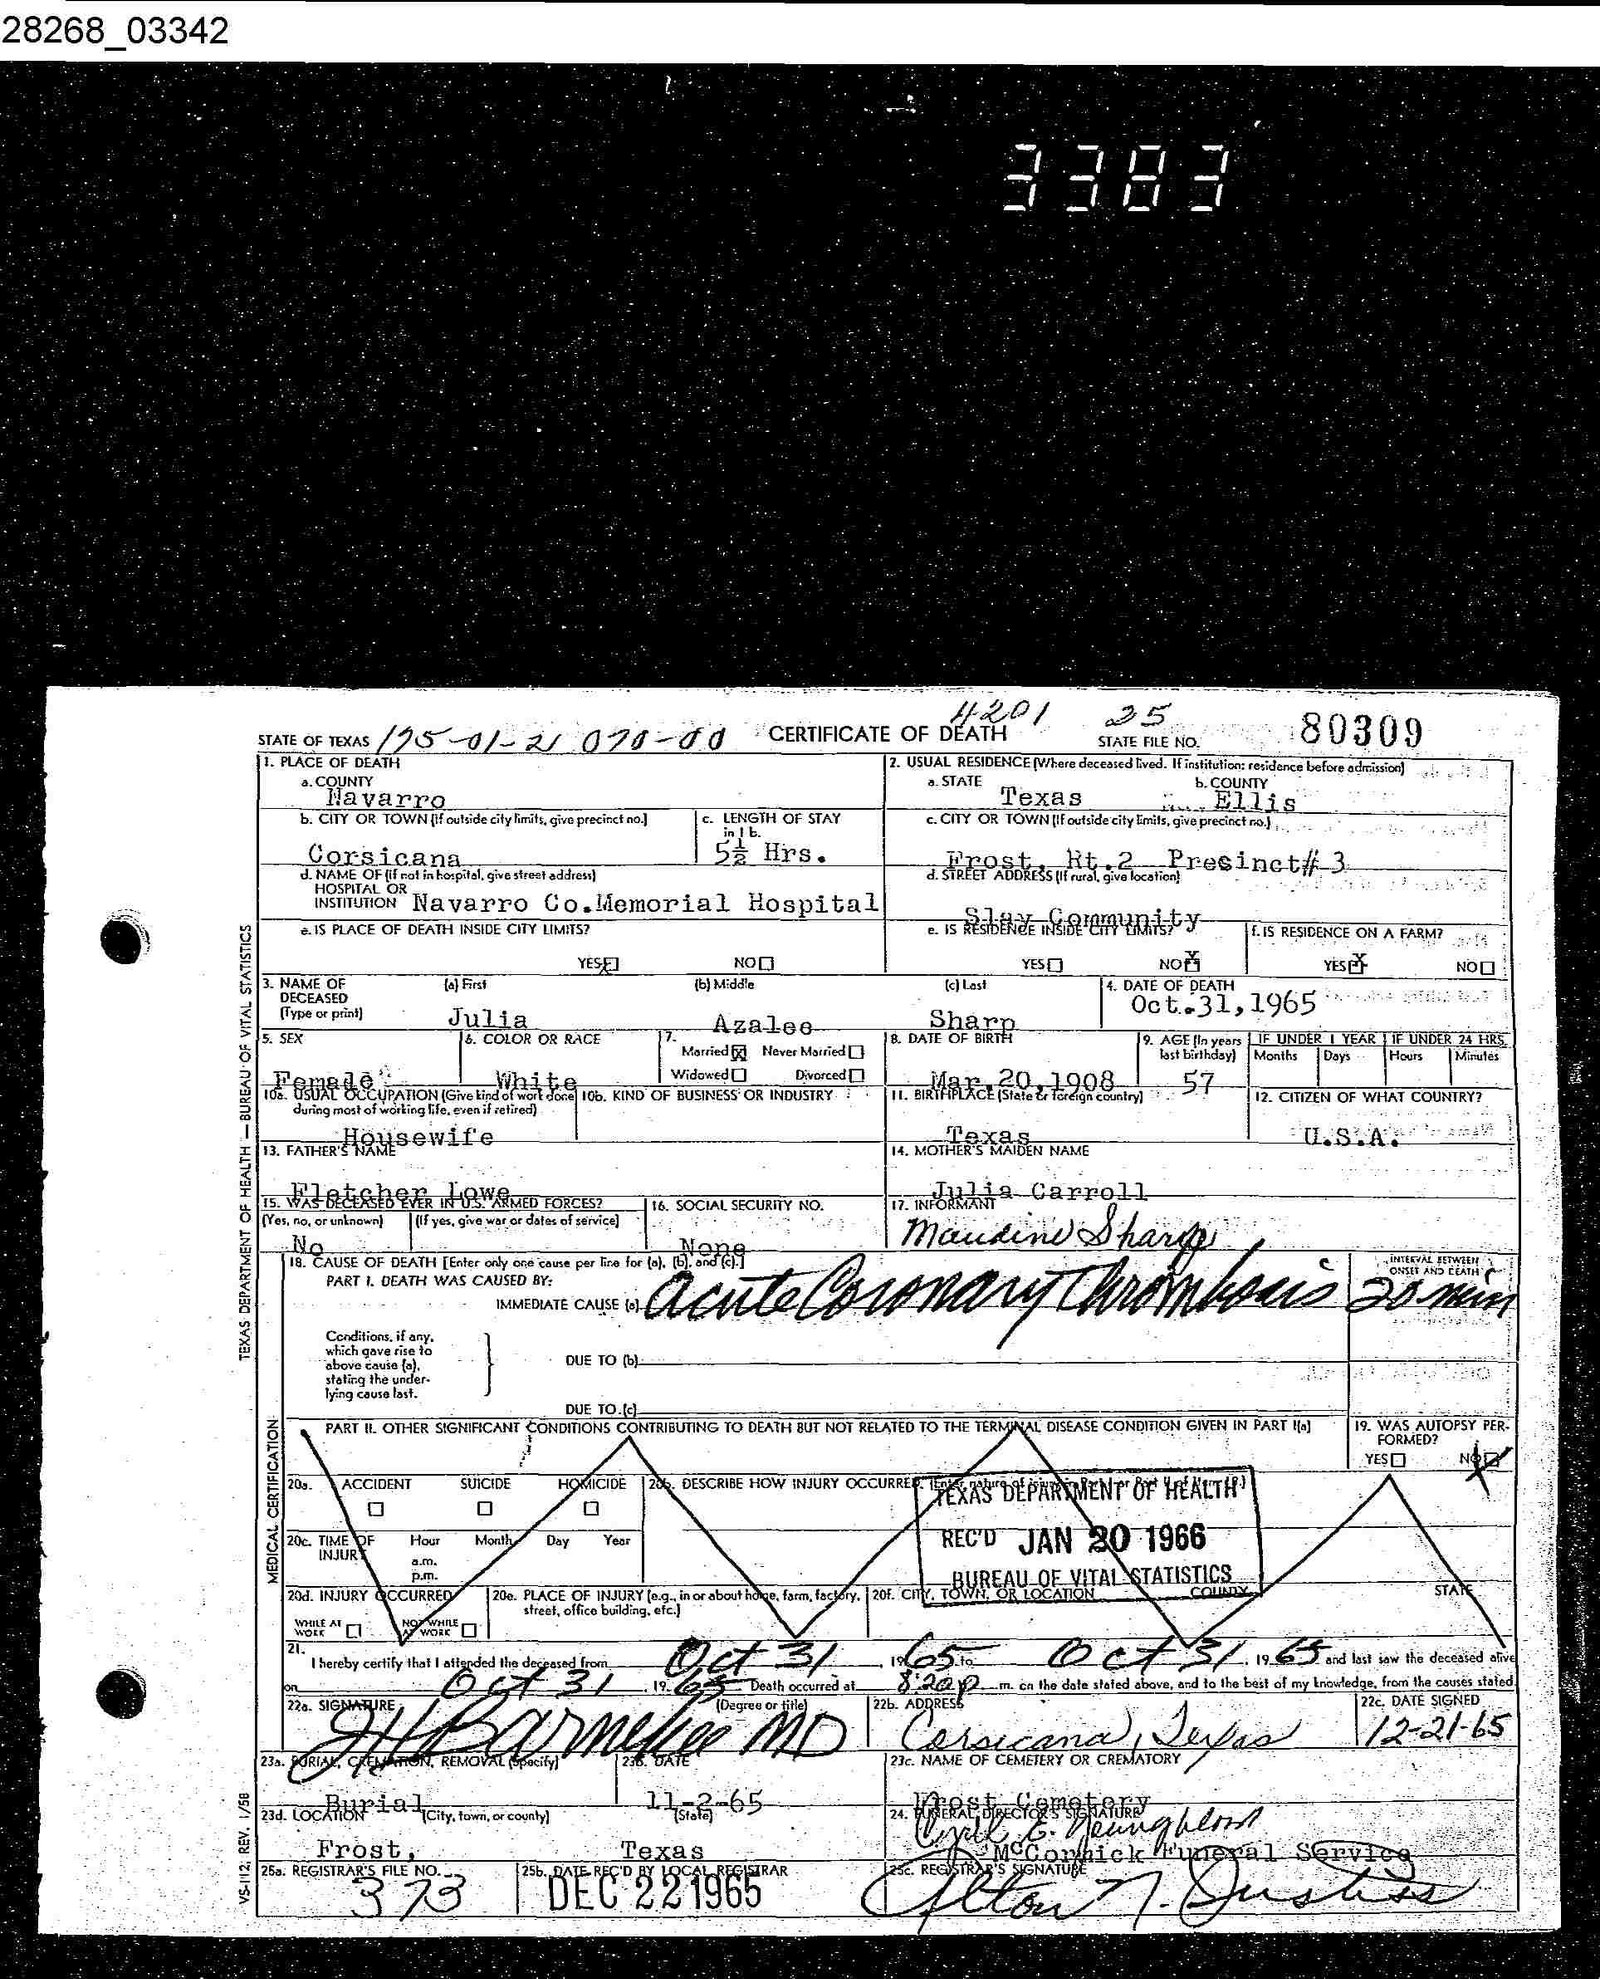 28268_03342
3383
4201 25 80309
STATE OF TEXAS 175-01-21 070-00 CERTIFICATE OF DEATH STATE FILE NO.
1. PLACE OF DEATH
a. COUNTY
Navarro
2. USUAL RESIDENCE (Where deceased lived. If institution: residence before admission)
a. STATE b. COUNTY
Texas Ellis
b. CITY OR TOWN (If outside city limits, give precinct no.) c. LENGTH OF STAY
in 1 b.
Corsicana 5½ Hrs.
c. CITY OR TOWN (If outside city limits, give precinct no.)
Frost, Rt.2 Presinct# 3
d. NAME OF (If not in hospital, give street address)
HOSPITAL OR
INSTITUTION Navarro Co.Memorial Hospital
d. STREET ADDRESS (If rural, give location)
Slay Community
e. IS PLACE OF DEATH INSIDE CITY LIMITS?
YES X NO
e. IS RESIDENCE INSIDE CITY LIMITS? f. IS RESIDENCE ON A FARM?
YES NO X YES X NO
3. NAME OF (a) First (b) Middle (c) Last
DECEASED
(Type or print) Julia Azalee Sharp
4. DATE OF DEATH
Oct.31,1965
5. SEX 6. COLOR OR RACE 7.
Married X Never Married
Widowed Divorced
Female White
8. DATE OF BIRTH 9. AGE (In years IF UNDER 1 YEAR IF UNDER 24 HRS.
last birthday) Months Days Hours Minutes
Mar.20,1908 57
10a. USUAL OCCUPATION (Give kind of work done 10b. KIND OF BUSINESS OR INDUSTRY
during most of working life, even if retired)
Housewife
11. BIRTHPLACE (State or foreign country) 12. CITIZEN OF WHAT COUNTRY?
Texas U.S.A.
13. FATHER'S NAME 14. MOTHER'S MAIDEN NAME
Fletcher Lowe Julia Carroll
15. WAS DECEASED EVER IN U.S. ARMED FORCES? 16. SOCIAL SECURITY NO. 17. INFORMANT
(Yes, no, or unknown) (If yes, give war or dates of service)
No None Maudine Sharp
18. CAUSE OF DEATH [Enter only one cause per line for (a), (b), and (c).] INTERVAL BETWEEN
PART I. DEATH WAS CAUSED BY: ONSET AND DEATH
IMMEDIATE CAUSE (a) Acute Coronary Thrombosis 20 min
Conditions, if any,
which gave rise to
above cause (a),
stating the under-
lying cause last.
DUE TO (b)
DUE TO (c)
PART II. OTHER SIGNIFICANT CONDITIONS CONTRIBUTING TO DEATH BUT NOT RELATED TO THE TERMINAL DISEASE CONDITION GIVEN IN PART I(a) 19. WAS AUTOPSY PER-
FORMED?
YES NO X
20a. ACCIDENT SUICIDE HOMICIDE 20b. DESCRIBE HOW INJURY OCCURRED. (Enter nature of injury in Part I or Part II of item 18.)
TEXAS DEPARTMENT OF HEALTH
REC'D JAN 20 1966
BUREAU OF VITAL STATISTICS
20c. TIME OF Hour Month Day Year
INJURY a.m.
p.m.
20d. INJURY OCCURRED 20e. PLACE OF INJURY (e.g., in or about home, farm, factory, 20f. CITY, TOWN, OR LOCATION COUNTY STATE
street, office building, etc.)
WHILE AT NOT WHILE
WORK AT WORK
21.
I hereby certify that I attended the deceased from Oct 31, 1965 to Oct 31, 1965 and last saw the deceased alive
on Oct 31, 1965 Death occurred at 8:20 p m. on the date stated above, and to the best of my knowledge, from the causes stated.
22a. SIGNATURE (Degree or title) 22b. ADDRESS 22c. DATE SIGNED
MD Corsicana, Texas 12-21-65
23a. BURIAL, CREMATION, REMOVAL (Specify) 23b. DATE 23c. NAME OF CEMETERY OR CREMATORY
Burial 11-2-65 Frost Cemetery
23d. LOCATION (City, town, or county) (State) 24. FUNERAL DIRECTOR'S SIGNATURE
Cyril E. Youngblood
Frost, Texas McCormick Funeral Service
25a. REGISTRAR'S FILE NO. 25b. DATE REC'D BY LOCAL REGISTRAR 25c. REGISTRAR'S SIGNATURE
373 DEC 22 1965 Alton N. Justiss
TEXAS DEPARTMENT OF HEALTH — BUREAU OF VITAL STATISTICS
MEDICAL CERTIFICATION
VS-112, REV. 1/58